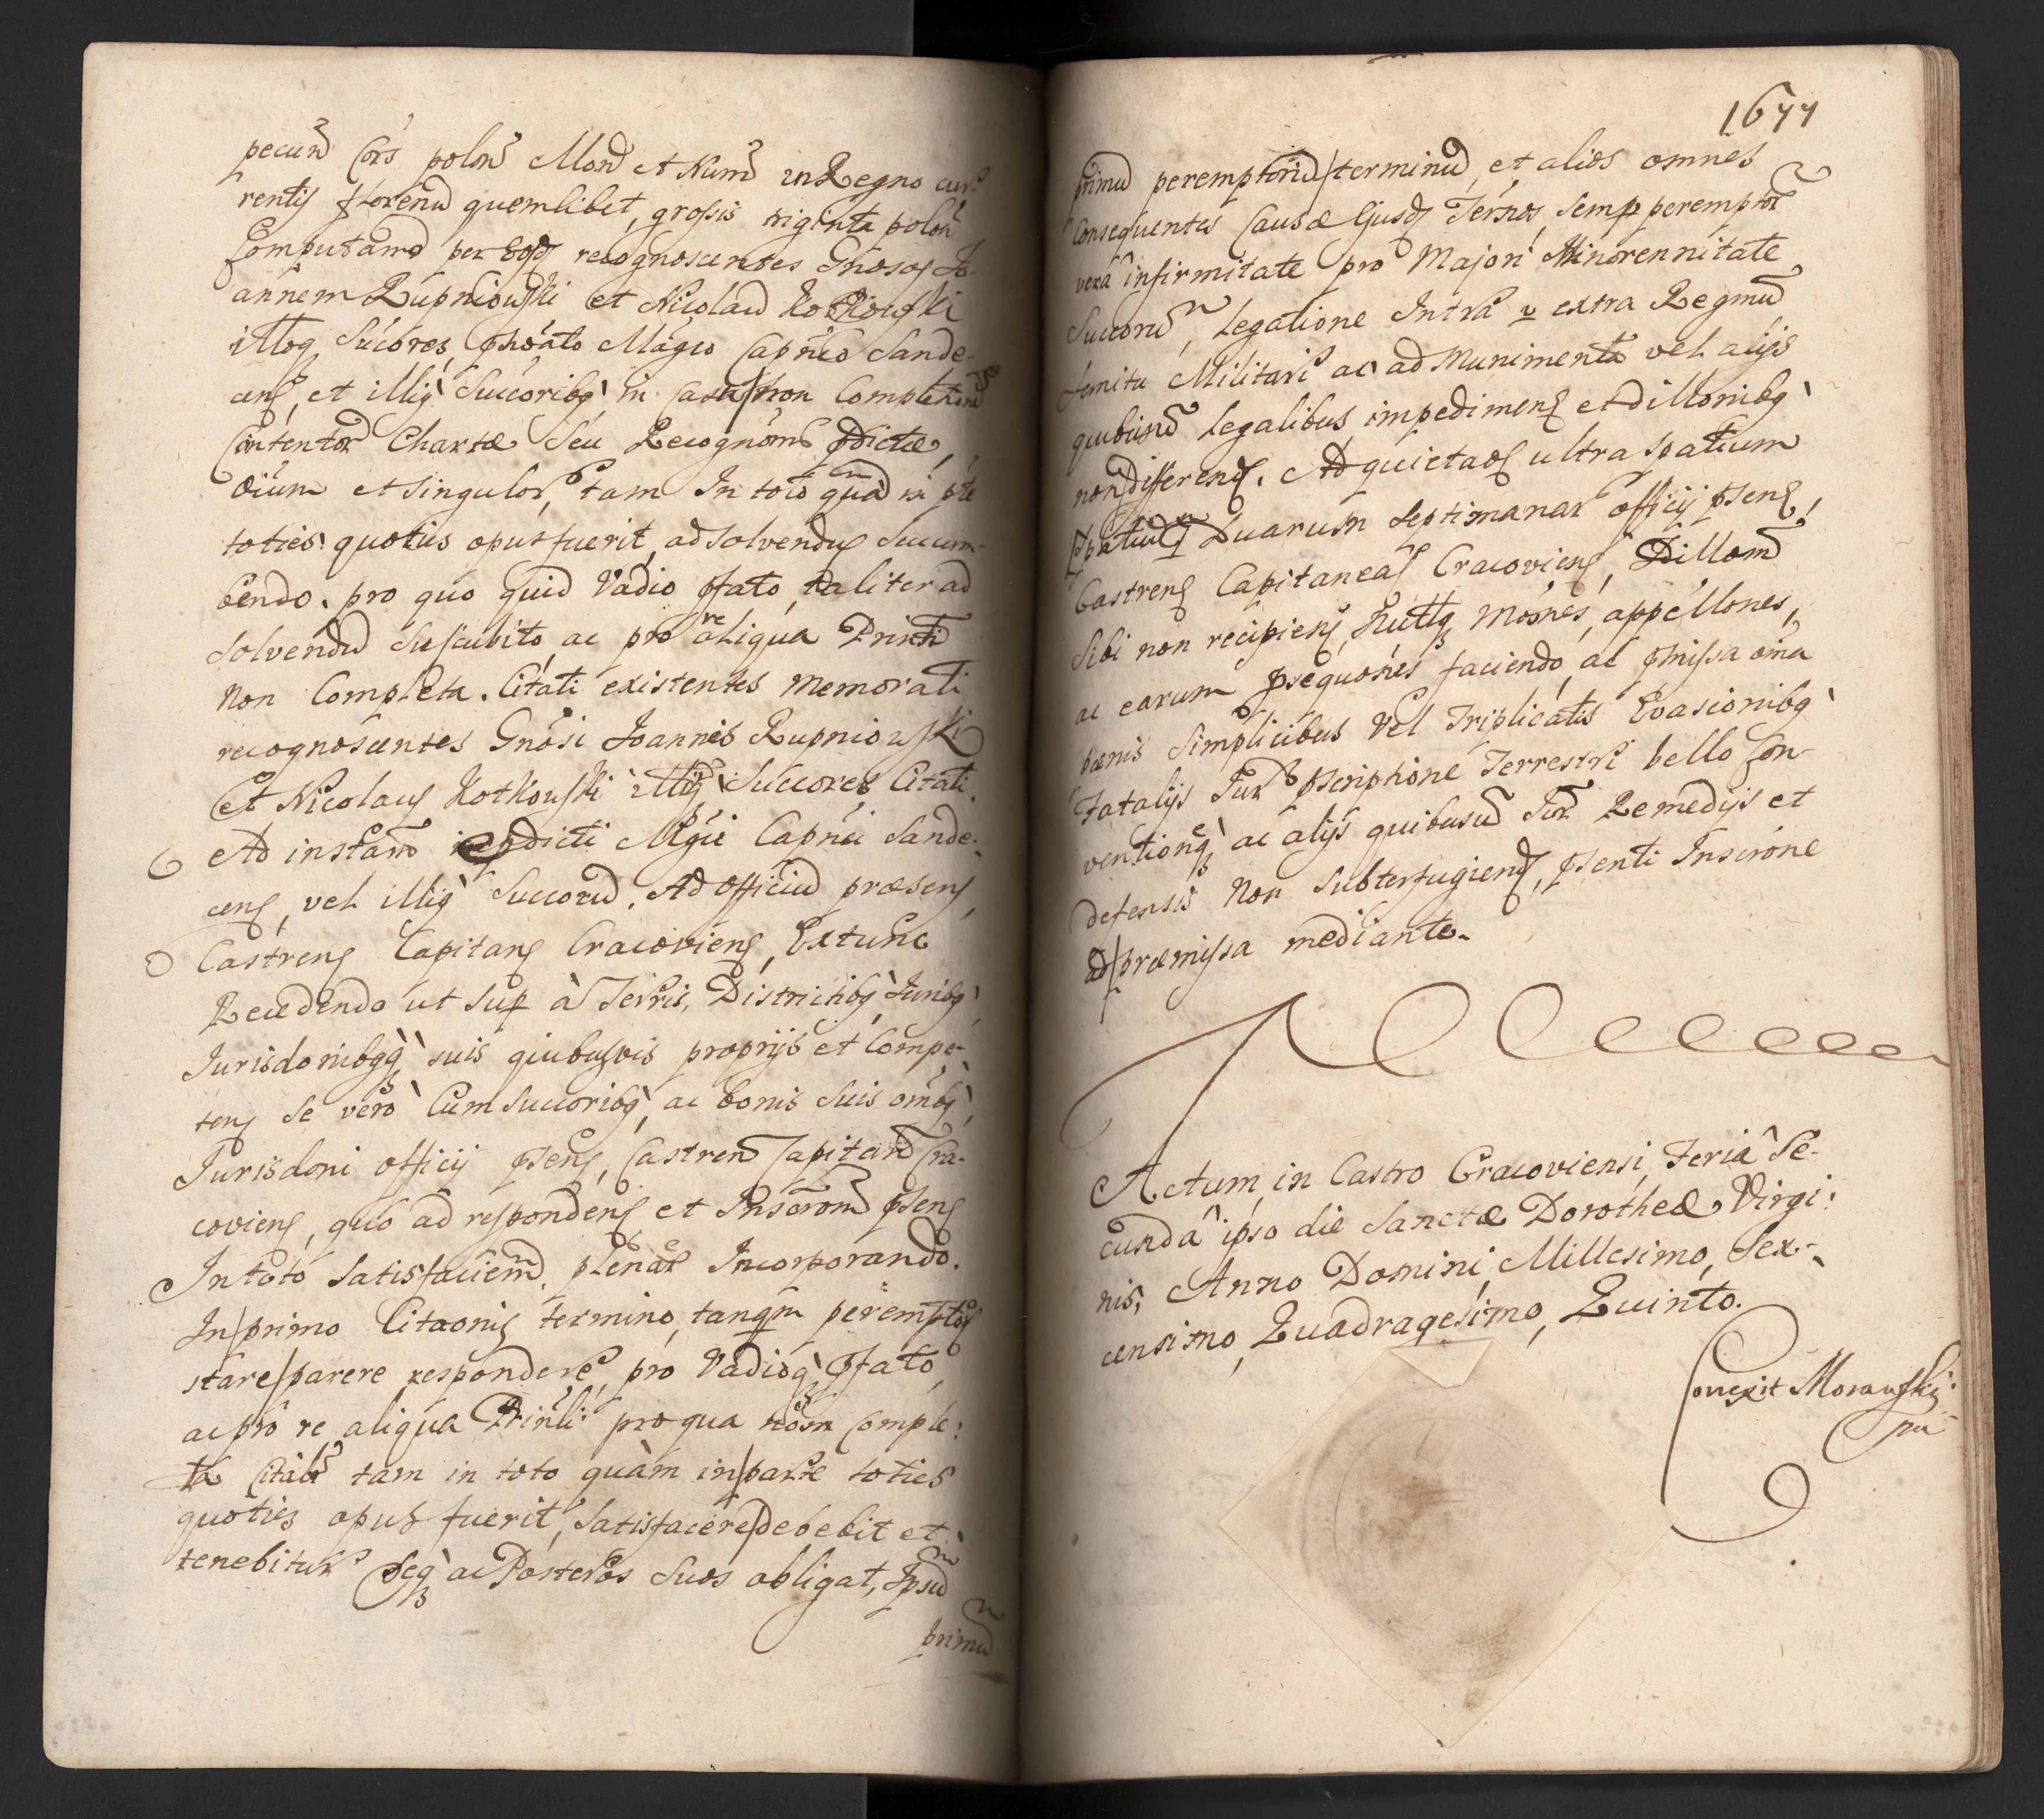 pecun Cois polon Mon et Num in Regno cur-
rentis florenu quemlibet, grossis triginta polon
Computand per Eosd recognoscentes Gnosos Jo-
annem Rupniowski et Nicolau Kotkowski
illoq Succores, pnoato Magco Capneo Sande-
cens, et illiq Succoribq in Casu non Completion
Contentor Chartæ Seu Recognoms pdictæ,
oium et singulor, tam In toto quam in pte
toties quoties opus fuerit, ad solvendu Succum-
bendo. pro quo quid Vadio pfato, taliter ad
solvendu Succubito, ac pro re aliqua Prinli
Non Completa. Citati existentes memorati
recognoscentes Gnosi Joannes Rupniowski
et Nicolaus Kotkowski illiq Succores Citati.
Ad instam pdicti Mgci Capnei Sande-
cens, vel illiq Succoru. Ad Officiu præsens
Castrens Capitans Cracoviens, Extunc
Recedendo ut sup à Terris, Districtibq Juribq
Jurisdonibqq suis quibusvis proprijs et Compe-
tens se verò Cum Succoribq, ac bonis Suis omibq,
Jurisdoni officij psens, Castren Capitan Cra-
coviens, quo ad respondens et Inscrom psens
In toto satisfaciend, plenar Incorporando.
In primo Citaonis termino, tanqm peremptor
stare parere respondere, pro Vadioq pfato,
ac pro re aliqua Prinli pro qua nom Comple:
ta Citabr tam in toto quàm in parte toties
quoties opus fuerit, Satisfacere debebit et
tenebitur Seq ac Posteros Suos obligat, Ipsum
primu
1677
primu peremptoriu terminu, et alios omnes
Consequentes Causæ Ejusd Ternos, Semp peremptor
vera infirmitate pro Majori Minorennitate
Succoru, legatione Intra v extra Regnu
Sonitu Militari ac ad Munimenta vel alijs
quibusvis legalibus impedimens et dillonibq
non differend. Ad quietad ultra spatium
spatiu Duarum Septimanar officij psens,
Castrens Capitaneas Cracoviens, Dillom
Sibi non recipiens, Nullq moines, appellones,
ac earum psequones faciendo, ac pmissa oma
pænis Simplicibus Vel Triplicatis Evasionibq
Fatalijs Jur pscriptione Terrestri bello Con-
ventionq ac alijs quibusvis Jur Remedijs et
defensis Non subterfugiend, psenti Inscrone
ad præmissa mediante.
Actum in Castro Cracoviensi, Feria Se-
cunda ipso die Sanctæ Dorotheæ Virgi:
nis, Anno Domini Millesimo, Sex-
censimo, Quadragesimo, Quinto.
Correxit Morawski